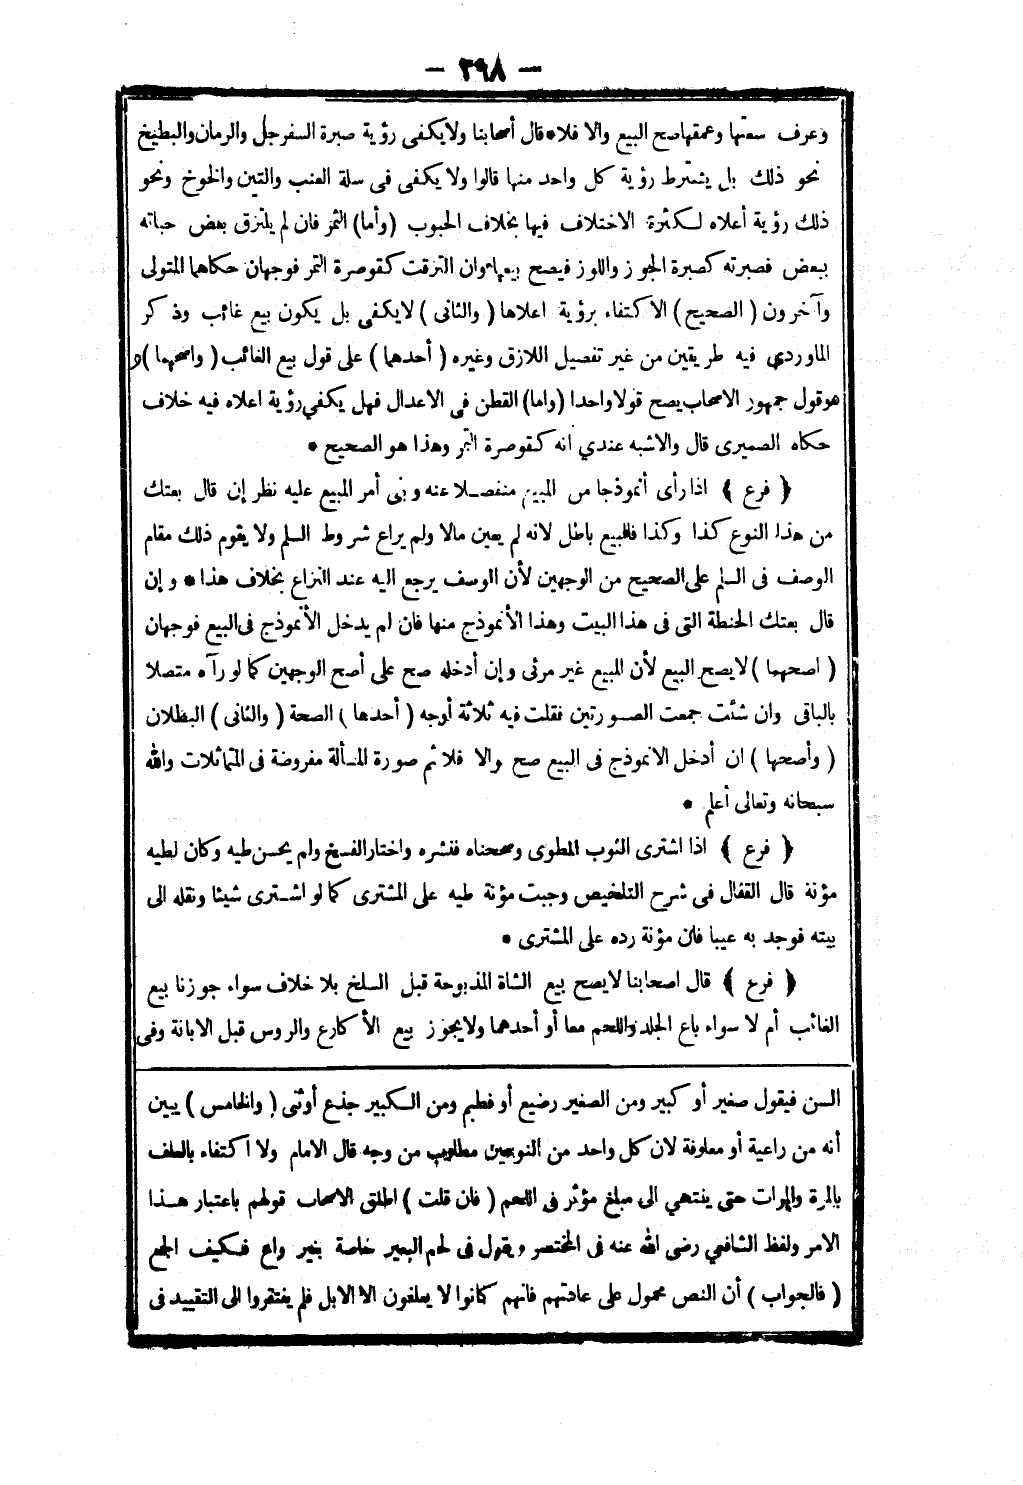 - ٢٩٨ -
وعرف سعتها وعمقها صح البيع والا فلا • قال أصحابنا ولا يكفى رؤية صبرة السفرجل والرمان والبطيخ
نحو ذلك بل يشترط رؤية كل واحد منها قالوا ولا يكفى فى سلة العنب والتين والخوخ ونحو
ذلك رؤية أعلاه لكثرة الاختلاف فيها بخلاف الحبوب (وأما) التمر فان لم يلتزق بعض حباته
ببعض فصبرته كصبرة الجوز واللوز فيصح بيعها وان التزقت كقوصرة التمر فوجهان حكاهما المتولى
وآخرون (الصحيح) الاكتفاء برؤية اعلاها (والثانى) لا يكفى بل يكون بيع غائب وذكر
الماوردي فيه طريقين من غير تفصيل اللازق وغيره (أحدهما) على قول بيع الغائب (واصحهما) و
هو قول جمهور الاصحاب يصح قولا واحدا (واما) القطن فى الاعدال فهل يكفي رؤية اعلاه فيه خلاف
حكاه الصميرى قال والاشبه عندي أنه كقوصرة التمر وهذا هو الصحيح •
﴿ فرع ﴾ اذا رأى أنموذجا من المبيع منفصلا عنه وبنى أمر المبيع عليه نظر إن قال بعتك
من هذا النوع كذا وكذا فالبيع باطل لانه لم يعين مالا ولم يراع شروط السلم ولا يقوم ذلك مقام
الوصف فى السلم على الصحيح من الوجهين لأن الوصف يرجع اليه عند النزاع بخلاف هذا • وإن
قال بعتك الحنطة التى فى هذا البيت وهذا الأنموذج منها فان لم يدخل الأنموذج فى البيع فوجهان
(اصحهما) لا يصح البيع لأن المبيع غير مرئى وإن أدخله صح على أصح الوجهين كما لو رآه متصلا
بالباقى وان شئت جمعت الصورتين فقلت فيه ثلاثة أوجه (أحدها) الصحة (والثانى) البطلان
(وأصحها) ان أدخل الانموذج فى البيع صح والا فلا ثم صورة المسألة مفروضة فى المتماثلات والله
سبحانه وتعالى أعلم •
﴿ فرع ﴾ اذا اشترى الثوب المطوى وصححناه فنشره واختار الفسخ ولم يحسن طيه وكان لطيه
مؤنة قال القفال فى شرح التلخيص وجبت مؤنة طيه على المشترى كما لو اشترى شيئا ونقله الى
بيته فوجد به عيبا فان مؤنة رده على المشترى •
﴿ فرع ﴾ قال اصحابنا لا يصح بيع الشاة المذبوحة قبل السلخ بلا خلاف سواء جوزنا بيع
الغائب أم لا سواء باع الجلد واللحم معا أو أحدهما ولا يجوز بيع الأكارع والروس قبل الابانة وفى
السن فيقول صغير أو كبير ومن الصغير رضيع أو فطيم ومن الكبير جذع أوثنى (والخامس) يبين
أنه من راعية أو معلوفة لان كل واحد من النوعين مطلوب من وجه قال الامام ولا اكتفاء بالعلف
بالمرة والمرات حتى ينتهي الى مبلغ مؤثر فى اللحم (فان قلت) اطلق الاصحاب قولهم باعتبار هذا
الامر ولفظ الشافعي رضى الله عنه فى المختصر ويقول فى لحم البعير خاصة بعير راع فكيف الجمع
(فالجواب) أن النص محمول على عادتهم فانهم كانوا لا يعلفون الا الابل فلم يفتقروا الى التقييد فى